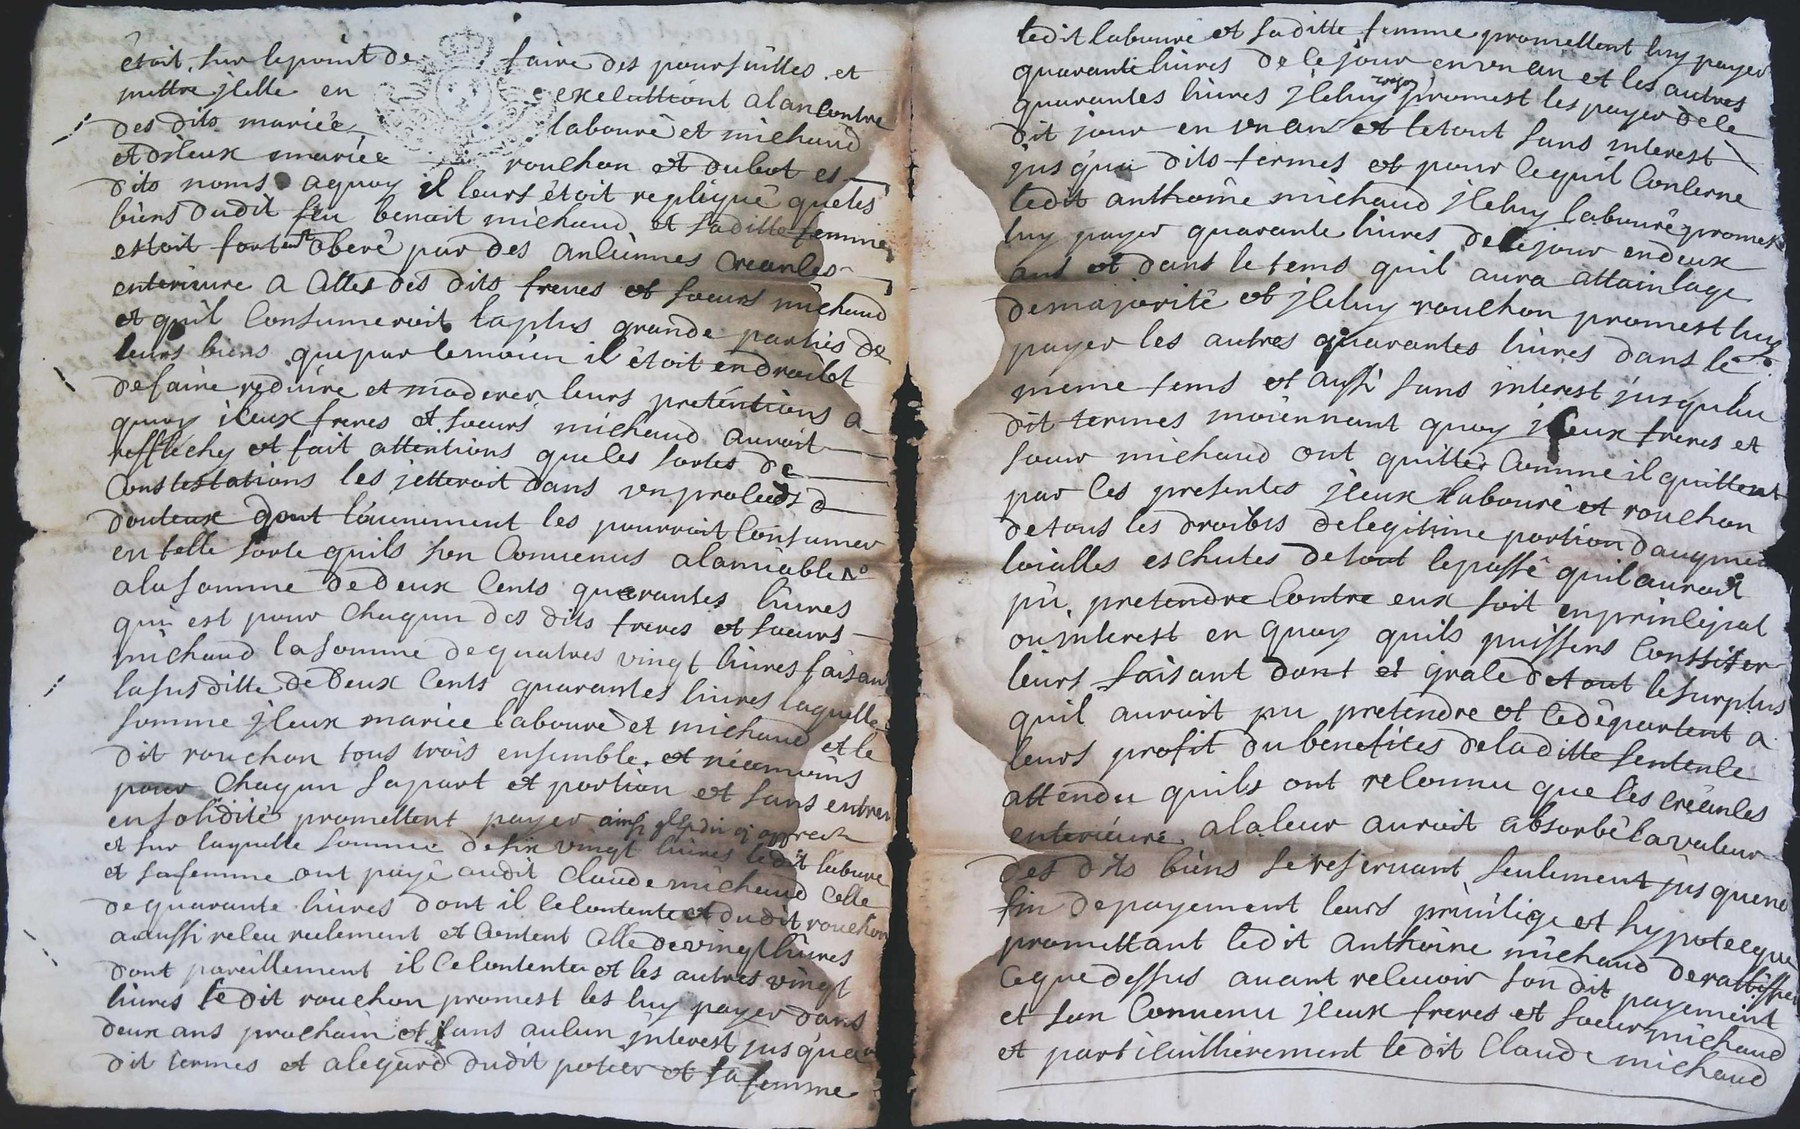 étoit sur lepoint de faire des poursuittes et
mettre jlelle en executtiont alancontre
des dits mariée labouré et michaud
et d'iceux mariée rouchon et dubot es
dits noms aquoy il leurs étoit repliqué queles
biens dudit feu benoit michaud et saditte femme
estoit fort oberé par des anciennes creances
enterieure a celles des dits freres et sœurs michaud
et quil consumeroit laplus grande parties de
leurs biens que par lemoien il étoit endroict
defaire reduire et moderer leurs pretentions a
quoy iceux freres et sœurs michaud auroit
refflechy et fait attentions queles sortes de
constestations les jetteroit dans vn proceds d
douteux dont l'euenement les pourroit consumer
en telle sorte quils son conuenus alamiable
ala somme dedeux cents quarantes liures
qui est pour chaqun des dits freres et sœurs
michaud la somme dequatres vingt liures faisan
lasusditte dedeux cents quarantes liures laquelle
somme jceux mariée labouré et michaud et le
dit rouchon tous trois ensemble et néamoins
pour chaqun sapart et portion et sans entrer
ensolidité promettent payer
et sur laquelle somme desix vingt liures ledit laboure
et safemme ont payé audit claude michaud celle
dequarante liures dont il cecontente et dudit rouchon
aaussi receu réelement et content celle devingt liures
dont pareillement il cecontente et les autres vingt
liures ledit rouchon promest les luy payer dans
deux ans prochain et sans aucun jnterest jusquau
dit termes et alegard dudit potier et sa femme
ledit labouré et saditte femme promettent luy payer
quarante liures de cejour en vn an et les autres
quarantes liures jceluy promest les payer de ce
dit jour en vn an et letout sans interest
jusqu'au dits termes et pour cequil concerne
ledit anthoine michaud jceluy labouré promest
luy payer quarante liures decejour endeux
ans et dans le tems quil aura attain lage
demajorité et jceluy rouchon promest luy
payer les autres quarantes liures dans le
meme tems et aussi sans interest jusquau
dit termes moiennant quoy jceux freres et
sœur michaud ont quittés comme il quittent
par les presentes jceux labouré et rouchon
detous les droibts delegitime portion daugmen
loialles eschutes detout lepassé quil auroit
pu pretendre contre eux soit en principal
ou interest en quoy quils puissens conssister
leurs faisant dont et grace detout lesurplus
quil auroit pu pretendre et cedépartent a
leurs profit du benefices deladitte sentence
attendu quils ont reconnu que les créances
enterieure alaleur auroit absorbé lavaleur
des dits biens sereseruant seulement jusquene
fin depayement leurs priuilige et hypotecque
promettant ledit anthoine michaud derattiffier
cequedessus auant receuoir son dit payement
et son conuenu jceux freres et sœur michaud
et particuillierement ledit claude michaud